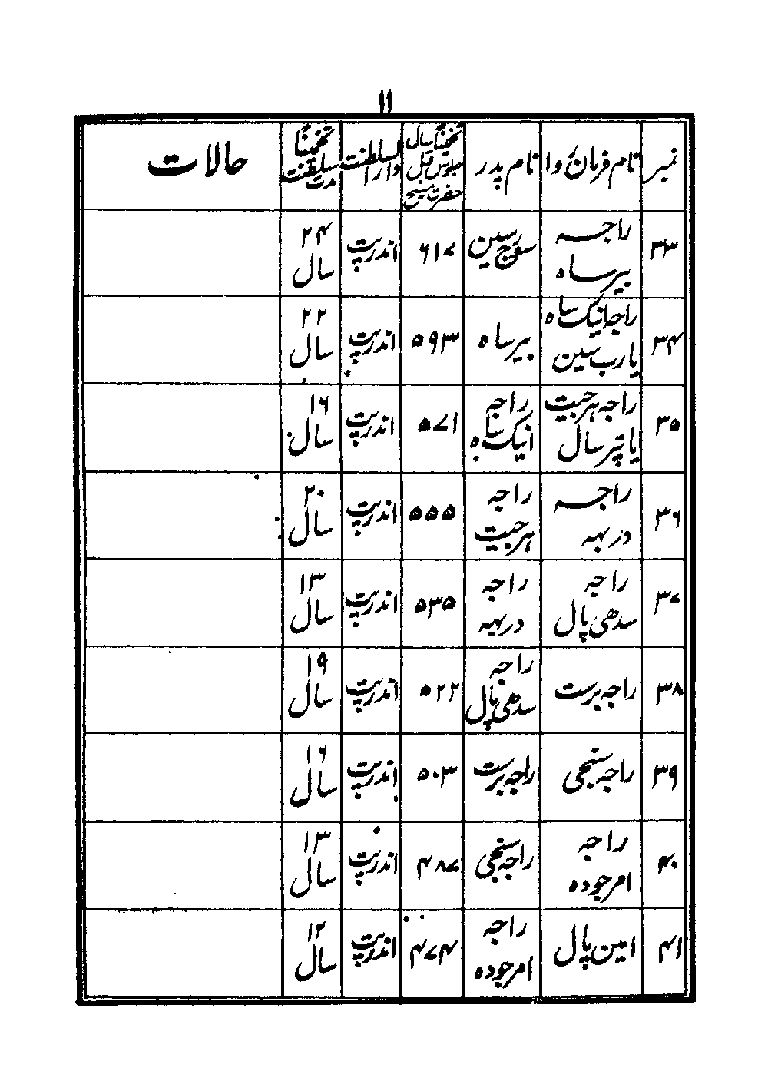 ۱۱
نمبر | نام فرمان روا | نام پدر | تخمیناً سال جلوس قبل حضرت مسیح | دارالسلطنت | تخمیناً مدت سلطنت | حالات
۳۳ | راجہ بیرساہ | سورج سین | ۶۱۷ | اندرپت | ۲۴ سال
۳۴ | راجہ انیک ساہ یا پرب سین | بیرساہ | ۵۹۳ | اندرپت | ۲۲ سال
۳۵ | راجہ ہرجیت یا تپرسال | راجہ انیک ساہ | ۵۷۱ | اندرپت | ۱۶ سال
۳۶ | راجہ دربہہ | راجہ ہرجیت | ۵۵۵ | اندرپت | ۲۰ سال
۳۷ | راجہ سدھی پال | راجہ دربہہ | ۵۳۵ | اندرپت | ۱۳ سال
۳۸ | راجہ برست | راجہ سدھی پال | ۵۲۲ | اندرپت | ۱۹ سال
۳۹ | راجہ سنجی | راجہ برست | ۵۰۳ | اندرپت | ۱۶ سال
۴۰ | راجہ امرجودہ | راجہ سنجی | ۴۸۷ | اندرپت | ۱۳ سال
۴۱ | امین پال | راجہ امرجودہ | ۴۷۴ | اندرپت | ۱۲ سال